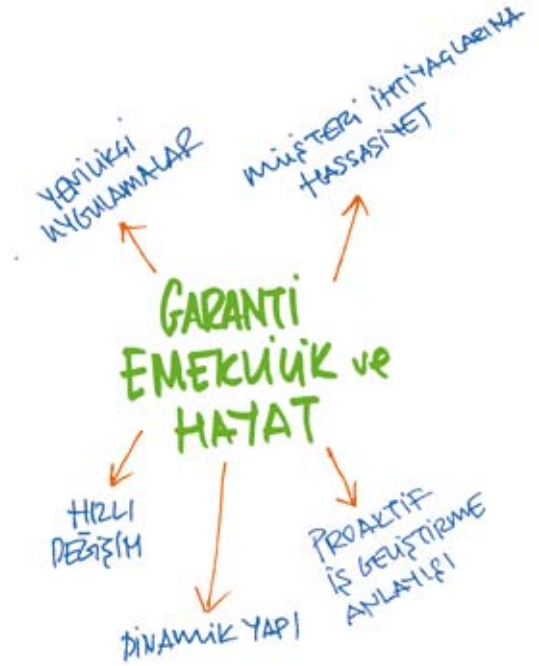 YENİLİKÇİ
UYGULAMALAR
MÜŞTERİ İHTİYAÇLARINA
HASSASİYET
GARANTİ
EMEKLİLİK ve
HAYAT
HIZLI
DEĞİŞİM
DİNAMİK YAPI
PROAKTİF
İŞ GELİŞTİRME
ANLAYIŞI